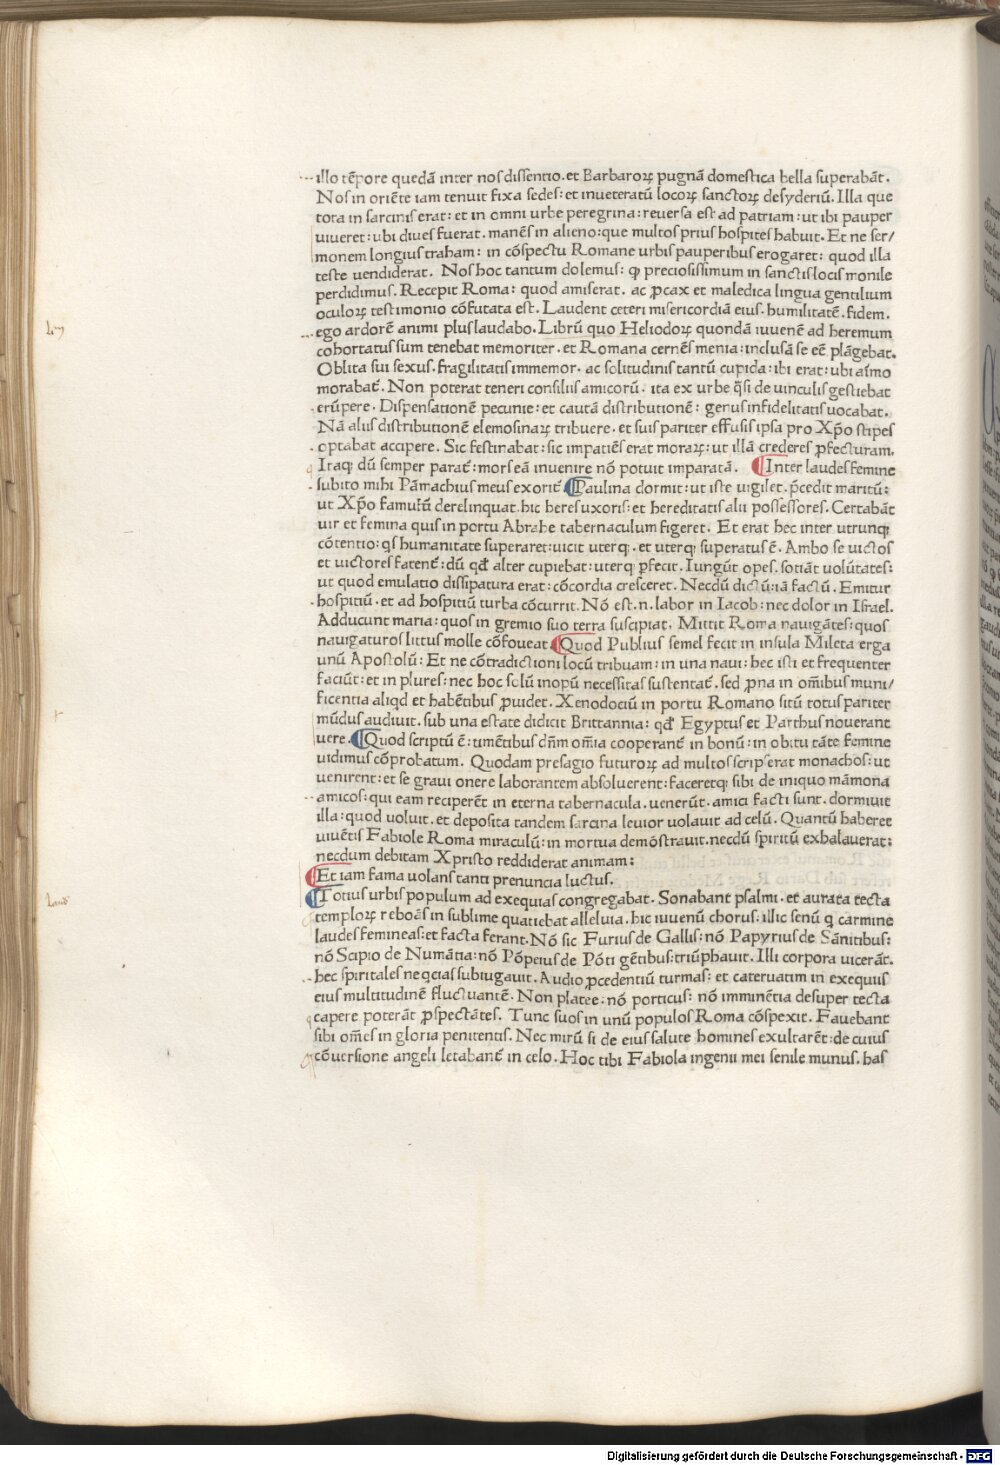 illo tēpore quedā inter nos dissentio. et Barbaroꝝ pugnā domestica bella superabāt.
Nos in oriēte iam tenuit fixa sedes: et inueteratū locoꝝ sanctoꝝ desyderiū. Illa que
tota in sarcinis erat: et in omni urbe peregrina: reuersa est ad patriam: ut ibi pauper
uiueret: ubi diues fuerat. manēs in alieno: que multos prius hospites habuit. Et ne ser/
monem longius traham: in cōspectu Romane urbis pauperibus erogaret: quod illa
teste uendiderat. Nos hoc tantum dolemus: ꝙ preciosissimum in sanctis locis monile
perdidimus. Recepit Roma: quod amiserat. ac ꝓcax et maledica lingua gentilium
oculoꝝ testimonio cōfutata est. Laudent ceteri misericordiā eius. humilitatē. fidem.
ego ardorē animi plus laudabo. Librū quo Heliodoꝝ quondā iuuenē ad heremum
cohortatus sum tenebat memoriter. et Romana cernēs menia: inclusā se eē plāgebat.
Oblita sui sexus. fragilitatis immemor. ac solitudinis tantū cupida: ibi erat: ubi aīmo
morabat᷑. Non poterat teneri consiliis amicorū. ita ex urbe q̄si de uinculis gestiebat
erūpere. Dispensationē pecunie: et cautā distributionē: genus infidelitatis uocabat.
Nā aliis distributionē elemosinaꝝ tribuere. et suis pariter effusis ipsa pro Xp̄o stipes
optabat accipere. Sic festinabat: sic impatiēs erat moraꝝ: ut illā crederes ꝓfecturam.
Itaqꝫ dū semper parat᷑: mors eā inuenire nō potuit imparatā. Inter laudes femine
subito mihi Pāmachius meus exorit᷑ Paulina dormit: ut iste uigilet. p̄cedit maritū:
ut Xp̄o famulū derelinquat. hic heres uxoris: et hereditatis alii possessores. Certabāt
uir et femina quis in portu Abrahe tabernaculum figeret. Et erat hec inter utrunqꝫ
cōtentio: qs humanitate superaret: uicit uterqꝫ. et uterqꝫ superatus ē. Ambo se uictos
et uictores fatent᷑: dū qđ alter cupiebat: uterqꝫ ꝑfecit. Iungūt opes. sotiāt volūtates:
ut quod emulatio dissipatura erat: cōcordia cresceret. Necdū dictū: iā factū. Emitur
hospitiū. et ad hospitiū turba cōcurrit. Nō est.n. labor in Iacob: nec dolor in Israel.
Adducunt maria: quos in gremio suo terra suscipiat. Mittit Roma nauigātes: quos
nauigaturos littus molle cōfoueat Quod Publius semel fecit in insula Mileta erga
unū Apostolū: Et ne cōtradictioni locū tribuam: in una naui: hec isti et frequenter
faciūt: et in plures: nec hoc solū inopū necessitas sustentat᷑. sed ꝓna in om̄ibus muni/
ficentia aliqd et habētibus ꝓuidet. Xenodociū in portu Romano sitū totus pariter
mūdus audiuit. sub una estate didicit Brittannia: qđ Egyptus et Parthus nouerant
uere. Quod scriptū ē: timētibus dn̄m om̄ia cooperant᷑ in bonū: in obitu tāte femine
uidimus cōprobatum. Quodam presagio futuroꝝ ad multos scripserat monachos: ut
uenirent: et se graui onere laborantem absoluerent: faceretqꝫ sibi de iniquo māmona
amicos: qui eam reciperēt in eterna tabernacula. uenerūt. amici facti sunt. dormiuit
illa: quod uoluit. et deposita tandem sarcina leuior uolauit ad celū. Quantū haberet
uiuētis Fabiole Roma miraculū: in mortua demōstrauit. necdū spiritū exhalauerat:
necdum debitam Xpristo reddiderat animam:
Et iam fama uolans tanti prenuncia luctus.
Totius urbis populum ad exequias congregabat. Sonabant psalmi. et aurata tecta
temploꝝ reboās in sublime quatiebat alleluia. hic iuuenū chorus: illic senū q̄ carmine
laudes femineas: et facta ferant. Nō sic Furius de Gallis: nō Papyrius de Sānitibus:
nō Scipio de Numātia: nō Pōpeius de Pōti gētibus: triūphauit. Illi corpora uicerāt.
hec spiritales neqcias subiugauit. Audio p̄cedentiū turmas: et cateruatim in exequiis
eius multitudinē fluctuantē. Non platee: nō porticus: nō imminētia desuper tecta
capere poterāt ꝓspectātes. Tunc suos in unū populos Roma cōspexit. Fauebant
sibi om̄es in gloria penitentis. Nec mirū si de eius salute homines exultarēt: de cuius
cōuersione angeli letabant᷑ in celo. Hoc tibi Fabiola ingenii mei senile munus. has
Digitalisierung gefördert durch die Deutsche Forschungsgemeinschaft - DFG